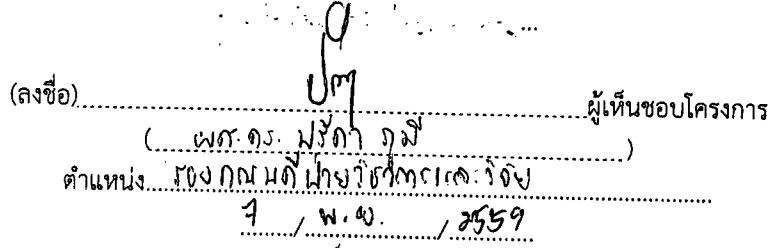 (ลงชื่อ)..........ผู้เห็นชอบโครงการ
( ผศ.ดร. ปรีดา ภูมี )
ตำแหน่ง รองคณบดีฝ่ายวิชาการและวิจัย
7 / พ.ย. / 2559